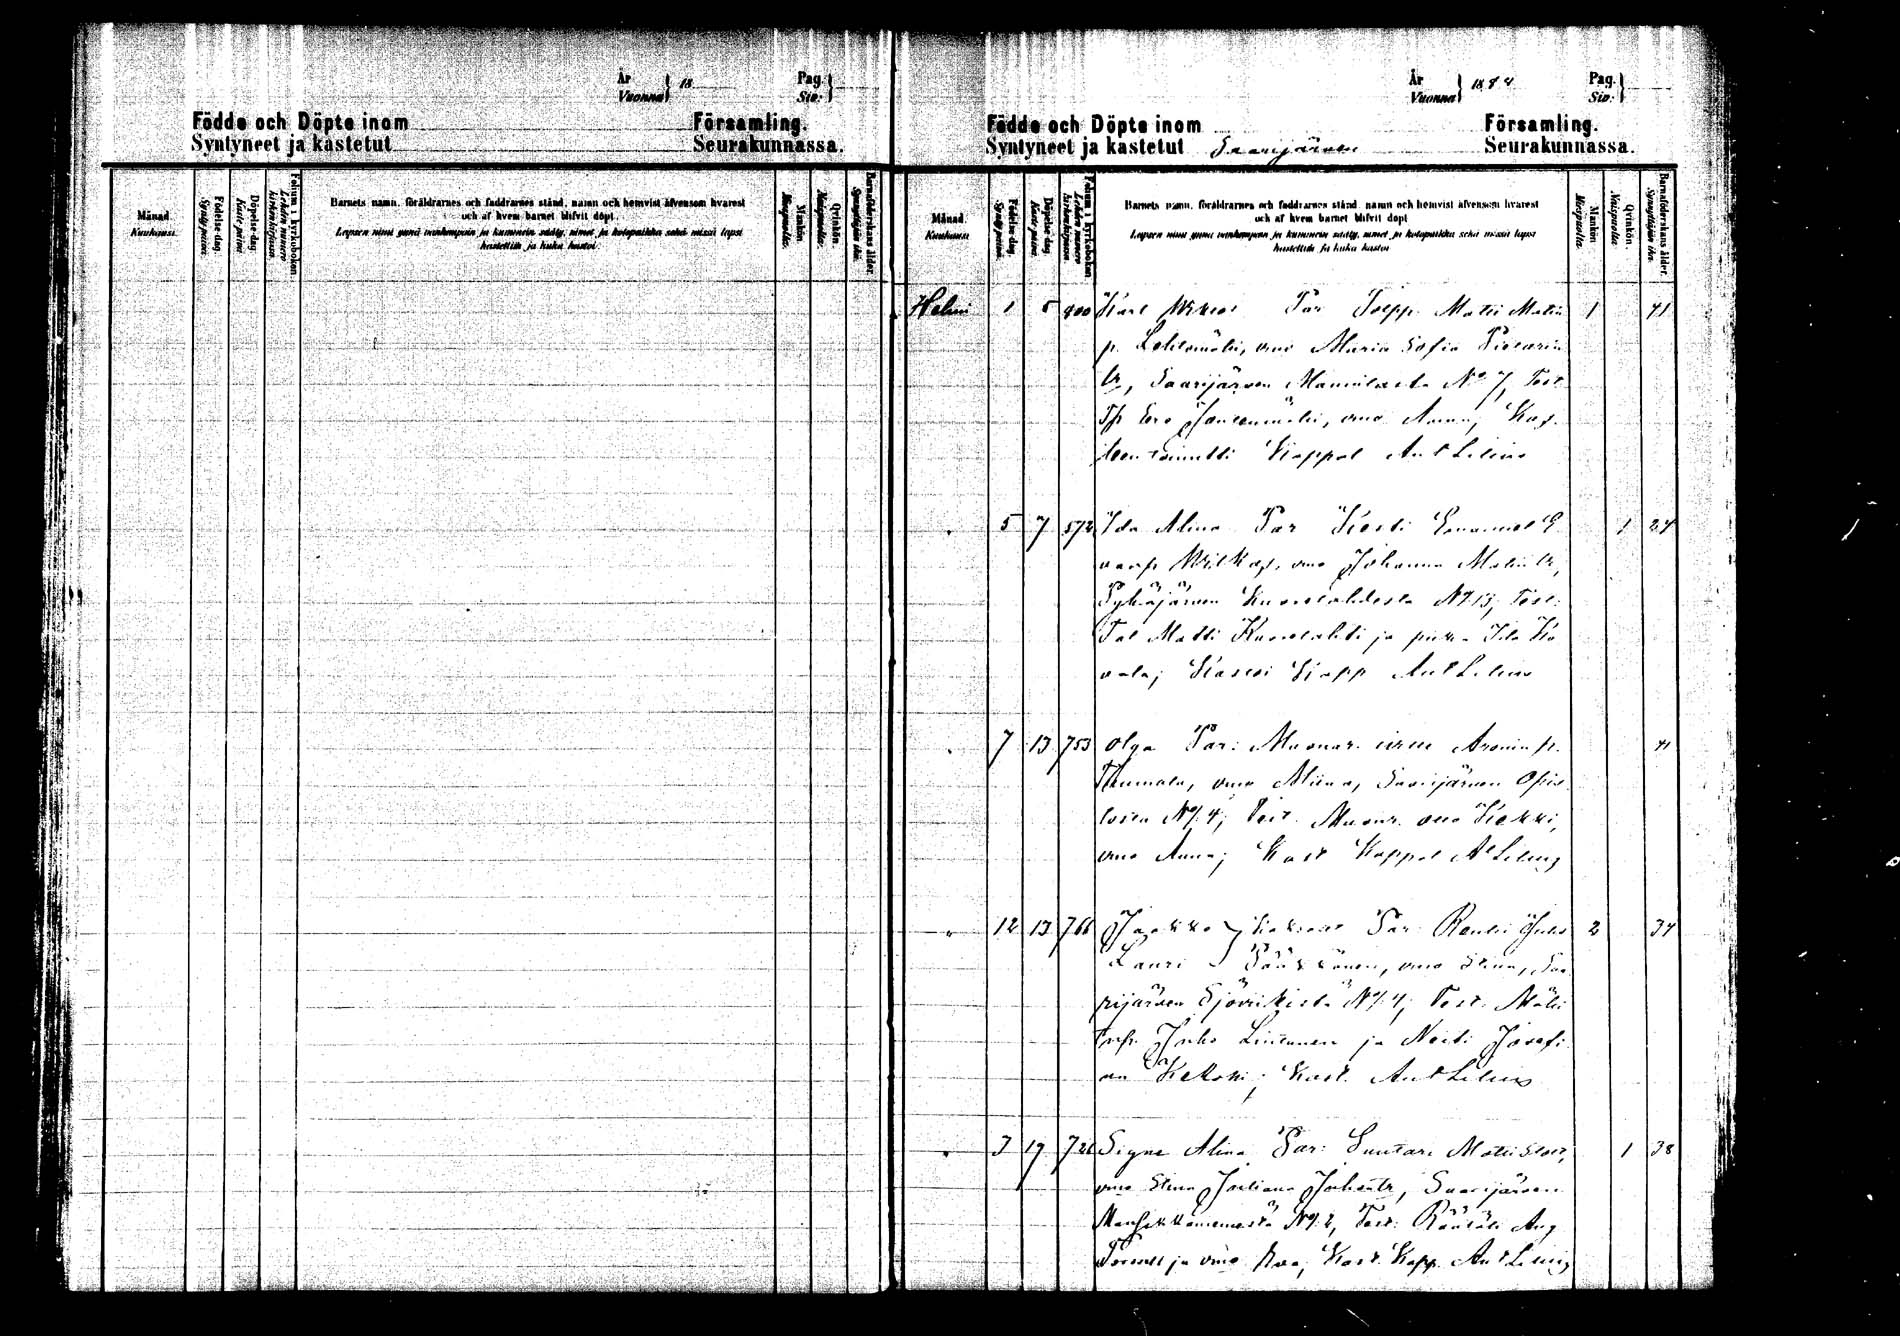 År
Vuonna } 18
Pag.
Siv. }
Födde och Döpte inom Församling.
Syntyneet ja kastetut Seurakunnassa.
Månad. Kuukausi.
Födelse-dag. Syntypäivä.
Döpelse-dag. Kastepäivä.
Folium i kyrkoboken. Lehden numero kirkonkirjassa.
Barnets namn, föräldrarnes och faddrarnes stånd, namn och hemvist äfvensom hvarest
och af hvem barnet blifvit döpt.
Lapsen nimi ynnä vanhempain ja kummein sääty, nimet ja kotopaikka sekä missä lapsi
kastettiin ja kuka kastoi.
Mankön. Miespuolta.
Qvinkön. Naispuolta.
Barnaföderskans ålder. Synnyttäjän ikä.
År
Vuonna } 1884
Pag.
Siv. }
Födde och Döpte inom Församling.
Syntyneet ja kastetut Saarijärven Seurakunnassa.
Månad. Kuukausi.
Födelse-dag. Syntypäivä.
Döpelse-dag. Kastepäivä.
Folium i kyrkoboken. Lehden numero kirkonkirjassa.
Barnets namn, föräldrarnes och faddrarnes stånd, namn och hemvist äfvensom hvarest
och af hvem barnet blifvit döpt
Lapsen nimi ynnä vanhempain ja kummein sääty, nimet ja kotopaikka sekä missä lapsi
kastettiin ja kuka kastoi
Mankön Miespuolta.
Qvinkön. Naispuolta.
Barnaföderskans ålder. Synnyttäjän ikä.
Helmi 1 5 800 Karl Victor Par Torpp. Matti Matin 1 41
p. Lehtomäki, vmo Maria Sofia Pietarin
tr, Saarijärven Mannilasta No 7, Test.
Tp Eero Jantunmäki, vmo Anna, Kast.
Kappal Ant Lilius
" 5 7 572 Ida Alina Par Kesti Emanuel E 1 24
vmo Johanna Matin tr,
Pyhäjärven Kuoretahdesta No 13, Test:
Tal Matti Kuoretahti ja piika Ida Ko
vala; Kastoi Kapp Ant Lilius
" 7 13 753 Olga Par: Muonar. Aronin p. 41
Tuumala, vmo Miina, Saarijärven
No 4; Test. Muonr. Kekki,
vmo Anna; Kast Kappal At Lilius
" 12 13 766 Jaakko } Par: Renki Juho 2 34
Lauri } Pääkkönen, vmo Stina, Saa
rijärven No 4; Test. Mäki
tvp. Juho Liimanen ja Neiti Josefi
na Kekoni; Kast. Ant Lilius
" 3 17 726 Signe Alina Par: Suutari Matti 1 38
vmo Stina Juliana Johantr, Saarijärven
Mansikkaniemestä No 2, Test: Räätäli Aug
ja vmo Eva, Kast. Kapp. Ant Lilius